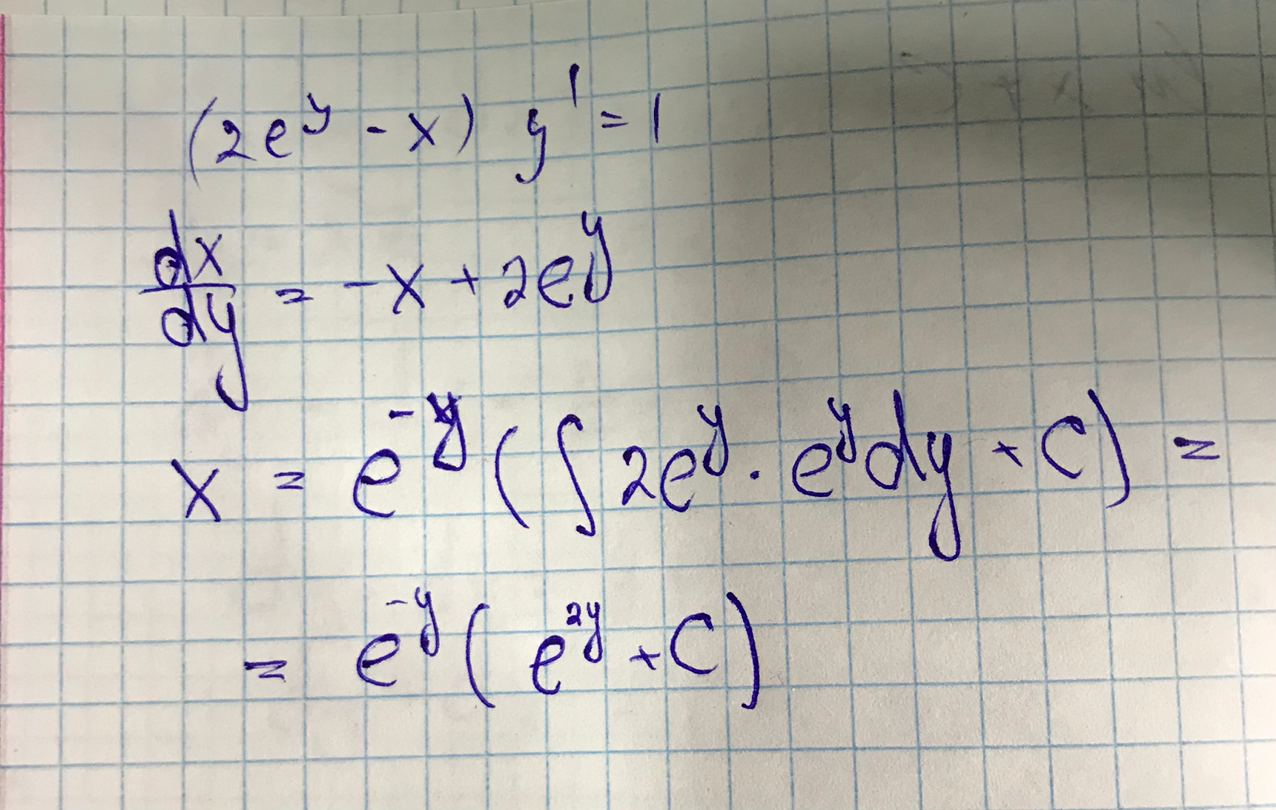 (2e^y - x) y' = 1
dx/dy = -x + 2e^y
x = e^-y (∫ 2e^y · e^y dy + C) =
= e^-y (e^2y + C)